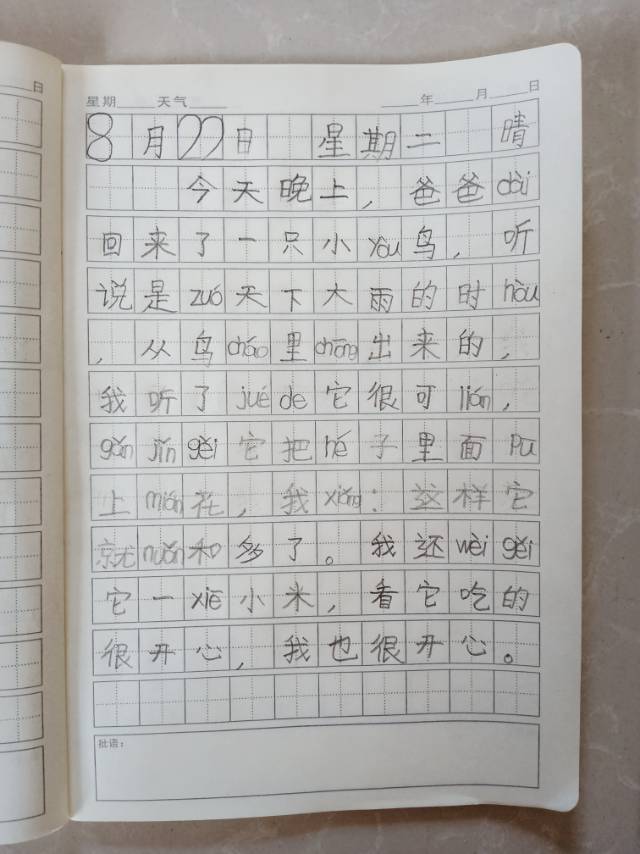 日
星期 天气 年 月 日
8月22日 星期二 晴
今天晚上，爸爸dài
回来了一只小yòu鸟，听
说是zuó天下大雨的时hòu
，从鸟cháo里chōng出来的，
我听了jué de它很可lián，
gǎn jǐn gěi它把hé子里面pū
上mián花，我xiǎng：这样它
就nuǎn和多了。我还wèi gěi
它一xiē小米，看它吃的
很开心，我也很开心。
批语：